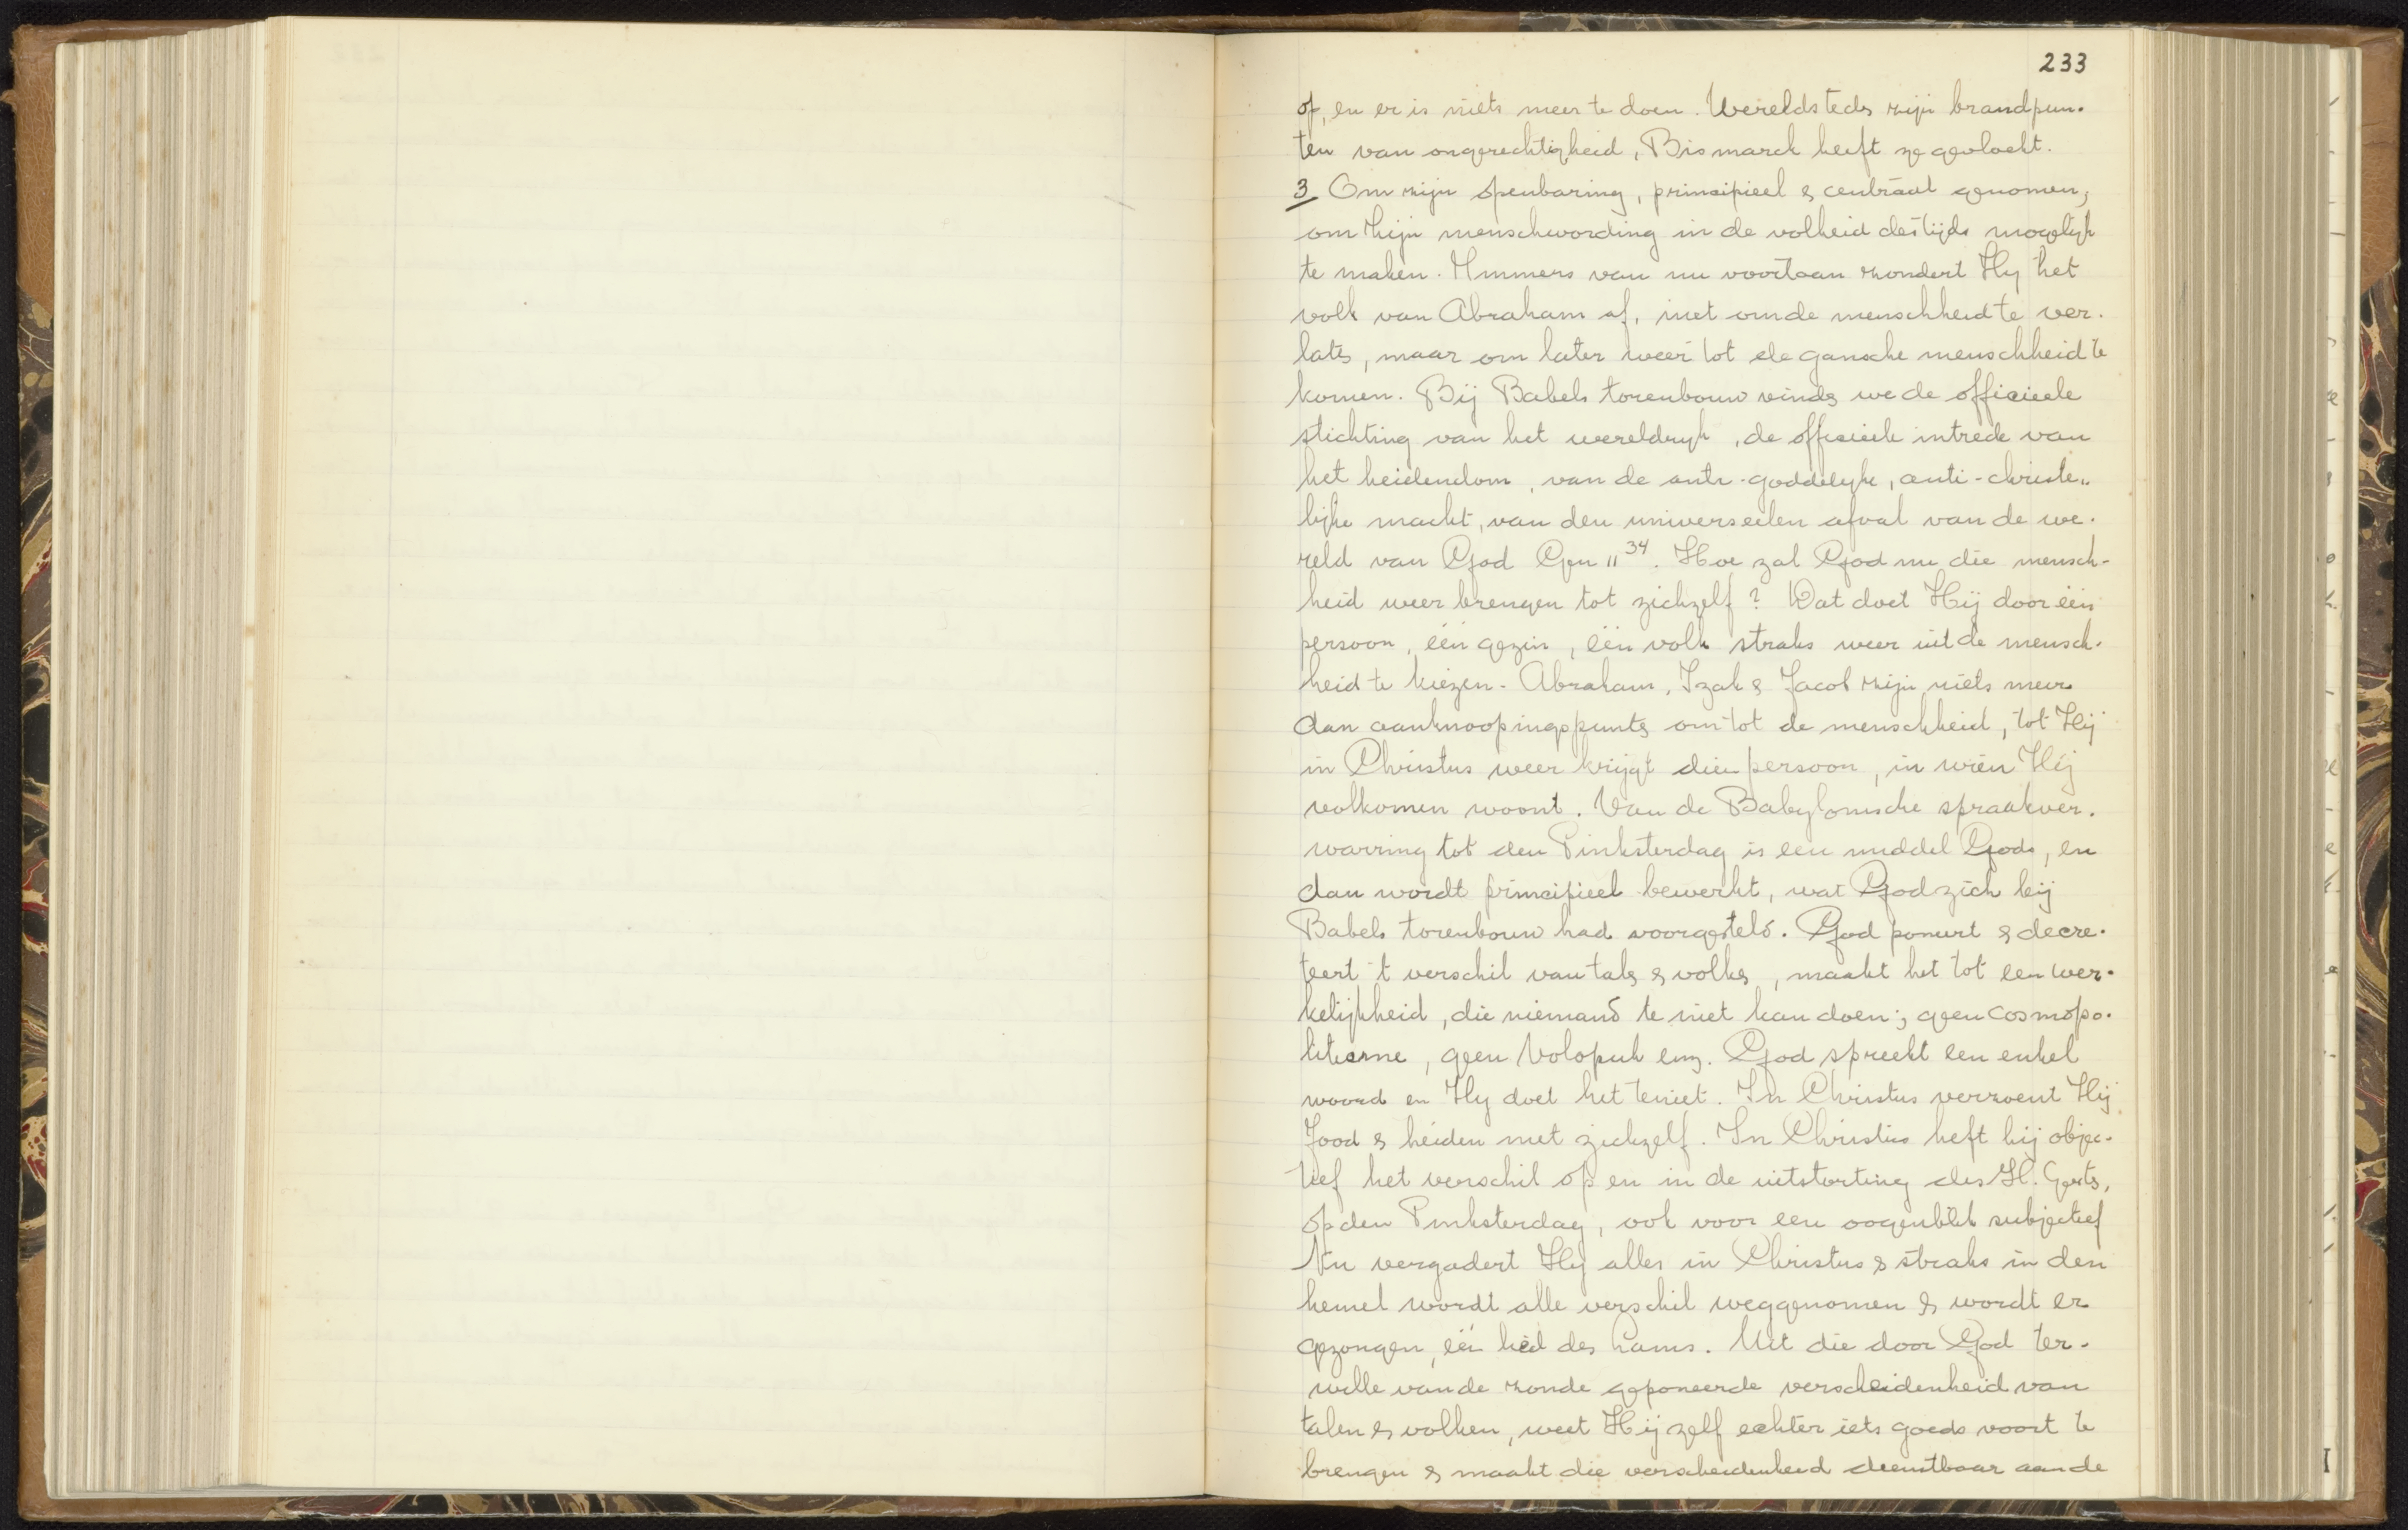 233
op, en er is niets meer te doen. Wereldsteds zijn brandpun-
ten van ongerechtigheid, Bismarck heeft ze gevloekt.
3 Om zijn openbaring, principieel & centraal genomen,
om Zijn menschwording in de volheid des tijds mogelijk
te maken. Immers van nu voortaan zondert Hy het
volk van Abraham af, niet om de menschheid te ver-
lats, maar om later weer tot de gansche menschheid te
komen. Bij Babels torenbouw vinds we de officieele
stichting van het wereldryk, de officieele intrede van
het heidendom, van de anti-goddelyke, anti-christe„
lijke macht, van den universeelen afval van de we-
reld van God Gen 11 34. Hoe zal God nu die mensch-
heid weer brengen tot zichzelf? Dat doet Hij door één
persoon, één gezin, één volk straks weer uit de mensch-
heid te kiezen. Abraham, Izak & Jacob zijn niets meer
dan aanknoopingspunts om tot de menschheid, tot Hij
in Christus weer krijgt dien persoon, in wien Hij
volkomen woont. Van de Babylonische spraakver-
warring tot den Pinksterdag is een middel Gods, en
dan wordt principieel bewerkt, wat God zich bij
Babels torenbouw had voorgesteld. God poneert & decre-
teert 't verschil van tals & volks, maakt het tot een wer-
kelijkheid, die niemand te niet kan doen; geen cosmopo-
litisme, geen Volopuk enz. God spreekt een enkel
woord en Hy doet het teniet. In Christus verzoent Hij
Jood & heiden met zichzelf. In Christus heft hij objec-
tief het verschil op en in de uitstorting des H. Geests,
op den Pinksterdag, ook voor een oogenblik subjectief
Nu vergadert Hy alles in Christus & straks in den
hemel wordt alle verschil weggenomen & wordt er
gezongen, één lied des Lams. Uit die door God ter-
wille van de zonde geponeerde verscheidenheid van
talen & volken, weet Hij zelf echter iets goeds voort te
brengen & maakt die verscheidenheid dienstbaar aan de